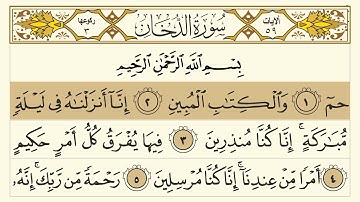 الآيات ٥٩ سُورَةُ الدُّخَانِ رکوعها ٣
بِسْمِ اللَّهِ الرَّحْمَٰنِ الرَّحِيمِ
حمٓ ١ وَالْكِتَابِ الْمُبِينِ ٢ إِنَّا أَنزَلْنَاهُ فِي لَيْلَةٍ
مُّبَارَكَةٍ ۚ إِنَّا كُنَّا مُنذِرِينَ ٣ فِيهَا يُفْرَقُ كُلُّ أَمْرٍ حَكِيمٍ
٤ أَمْرًا مِّنْ عِندِنَا ۚ إِنَّا كُنَّا مُرْسِلِينَ ٥ رَحْمَةً مِّن رَّبِّكَ ۚ إِنَّهُ